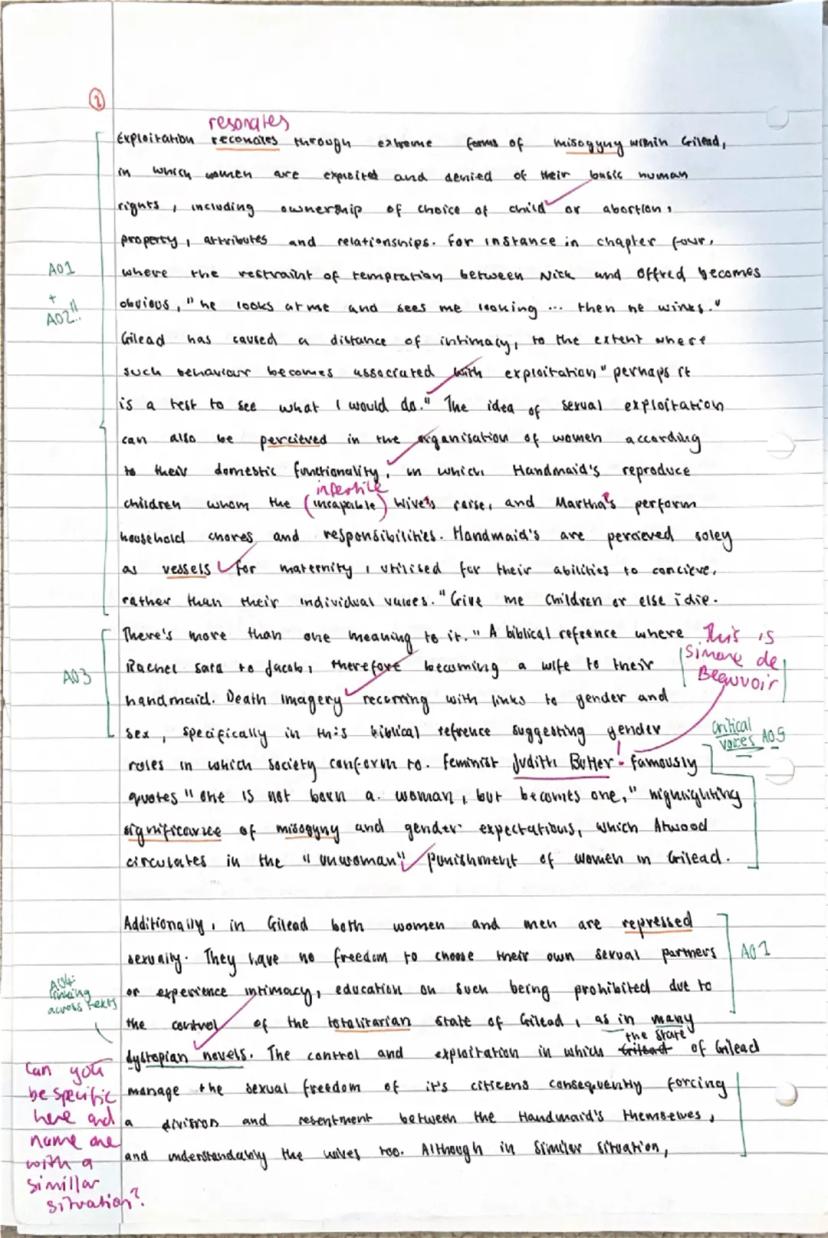 2
resonates
Exploitation reconates through extreme forms of misogyny within Gilead,
in which women are exploited and denied of their basic human
rights, including ownership of choice of child or abortion,
property, attributes and relationships. For instance in chapter four,
where the restraint of temptation between Nick and Offred becomes
obvious, "he looks at me and sees me looking ... then he winks."
Gilead has caused a distance of intimacy, to the extent where
such behaviour becomes associated with exploitation "perhaps it
is a test to see what I would do." The idea of sexual exploitation
can also be percieved in the organisation of women according
to their domestic functionality, in which Handmaid's reproduce
infertile
children whom the (incapable) Wive's raise, and Martha's perform
household chores and responsibilities. Handmaid's are percieved soley
as vessels for maternity, utilised for their abilities to concieve,
rather than their individual values. "Give me children or else i die.
There's more than one meaning to it." A biblical refrence where
Rachel said to Jacob, therefore becoming a wife to their
handmaid. Death imagery recurring with links to gender and
sex, specifically in this biblical refrence suggesting gender
roles in which society conform to. Feminist Judith Butler famously
quotes "one is not born a woman, but becomes one," highlighting
significance of misogyny and gender expectations, which Atwood
circulates in the "unwoman" punishment of women in Gilead.
Additionally, in Gilead both women and men are repressed
sexually. They have no freedom to choose their own sexual partners
or experience intimacy, education on such being prohibited due to
the control of the totalitarian state of Gilead, as in many
the state
dystopian novels. The control and exploitation in which of Gilead
manage the sexual freedom of it's citizens consequently forcing
a division and resentment between the Handmaid's themselves,
and understandably the wives too. Although in similar situation,
A01
+
A02!!
A03
This is
Simone de
Beauvoir
!
Critical
voices A05
A01
A04
linking
across texts
Can you
be specific
here and
name one
with a
simillar
situation?